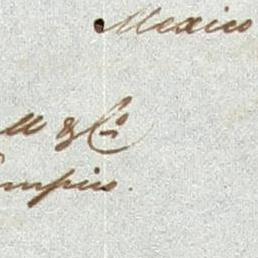 Mexico
ll & Co
mpico.